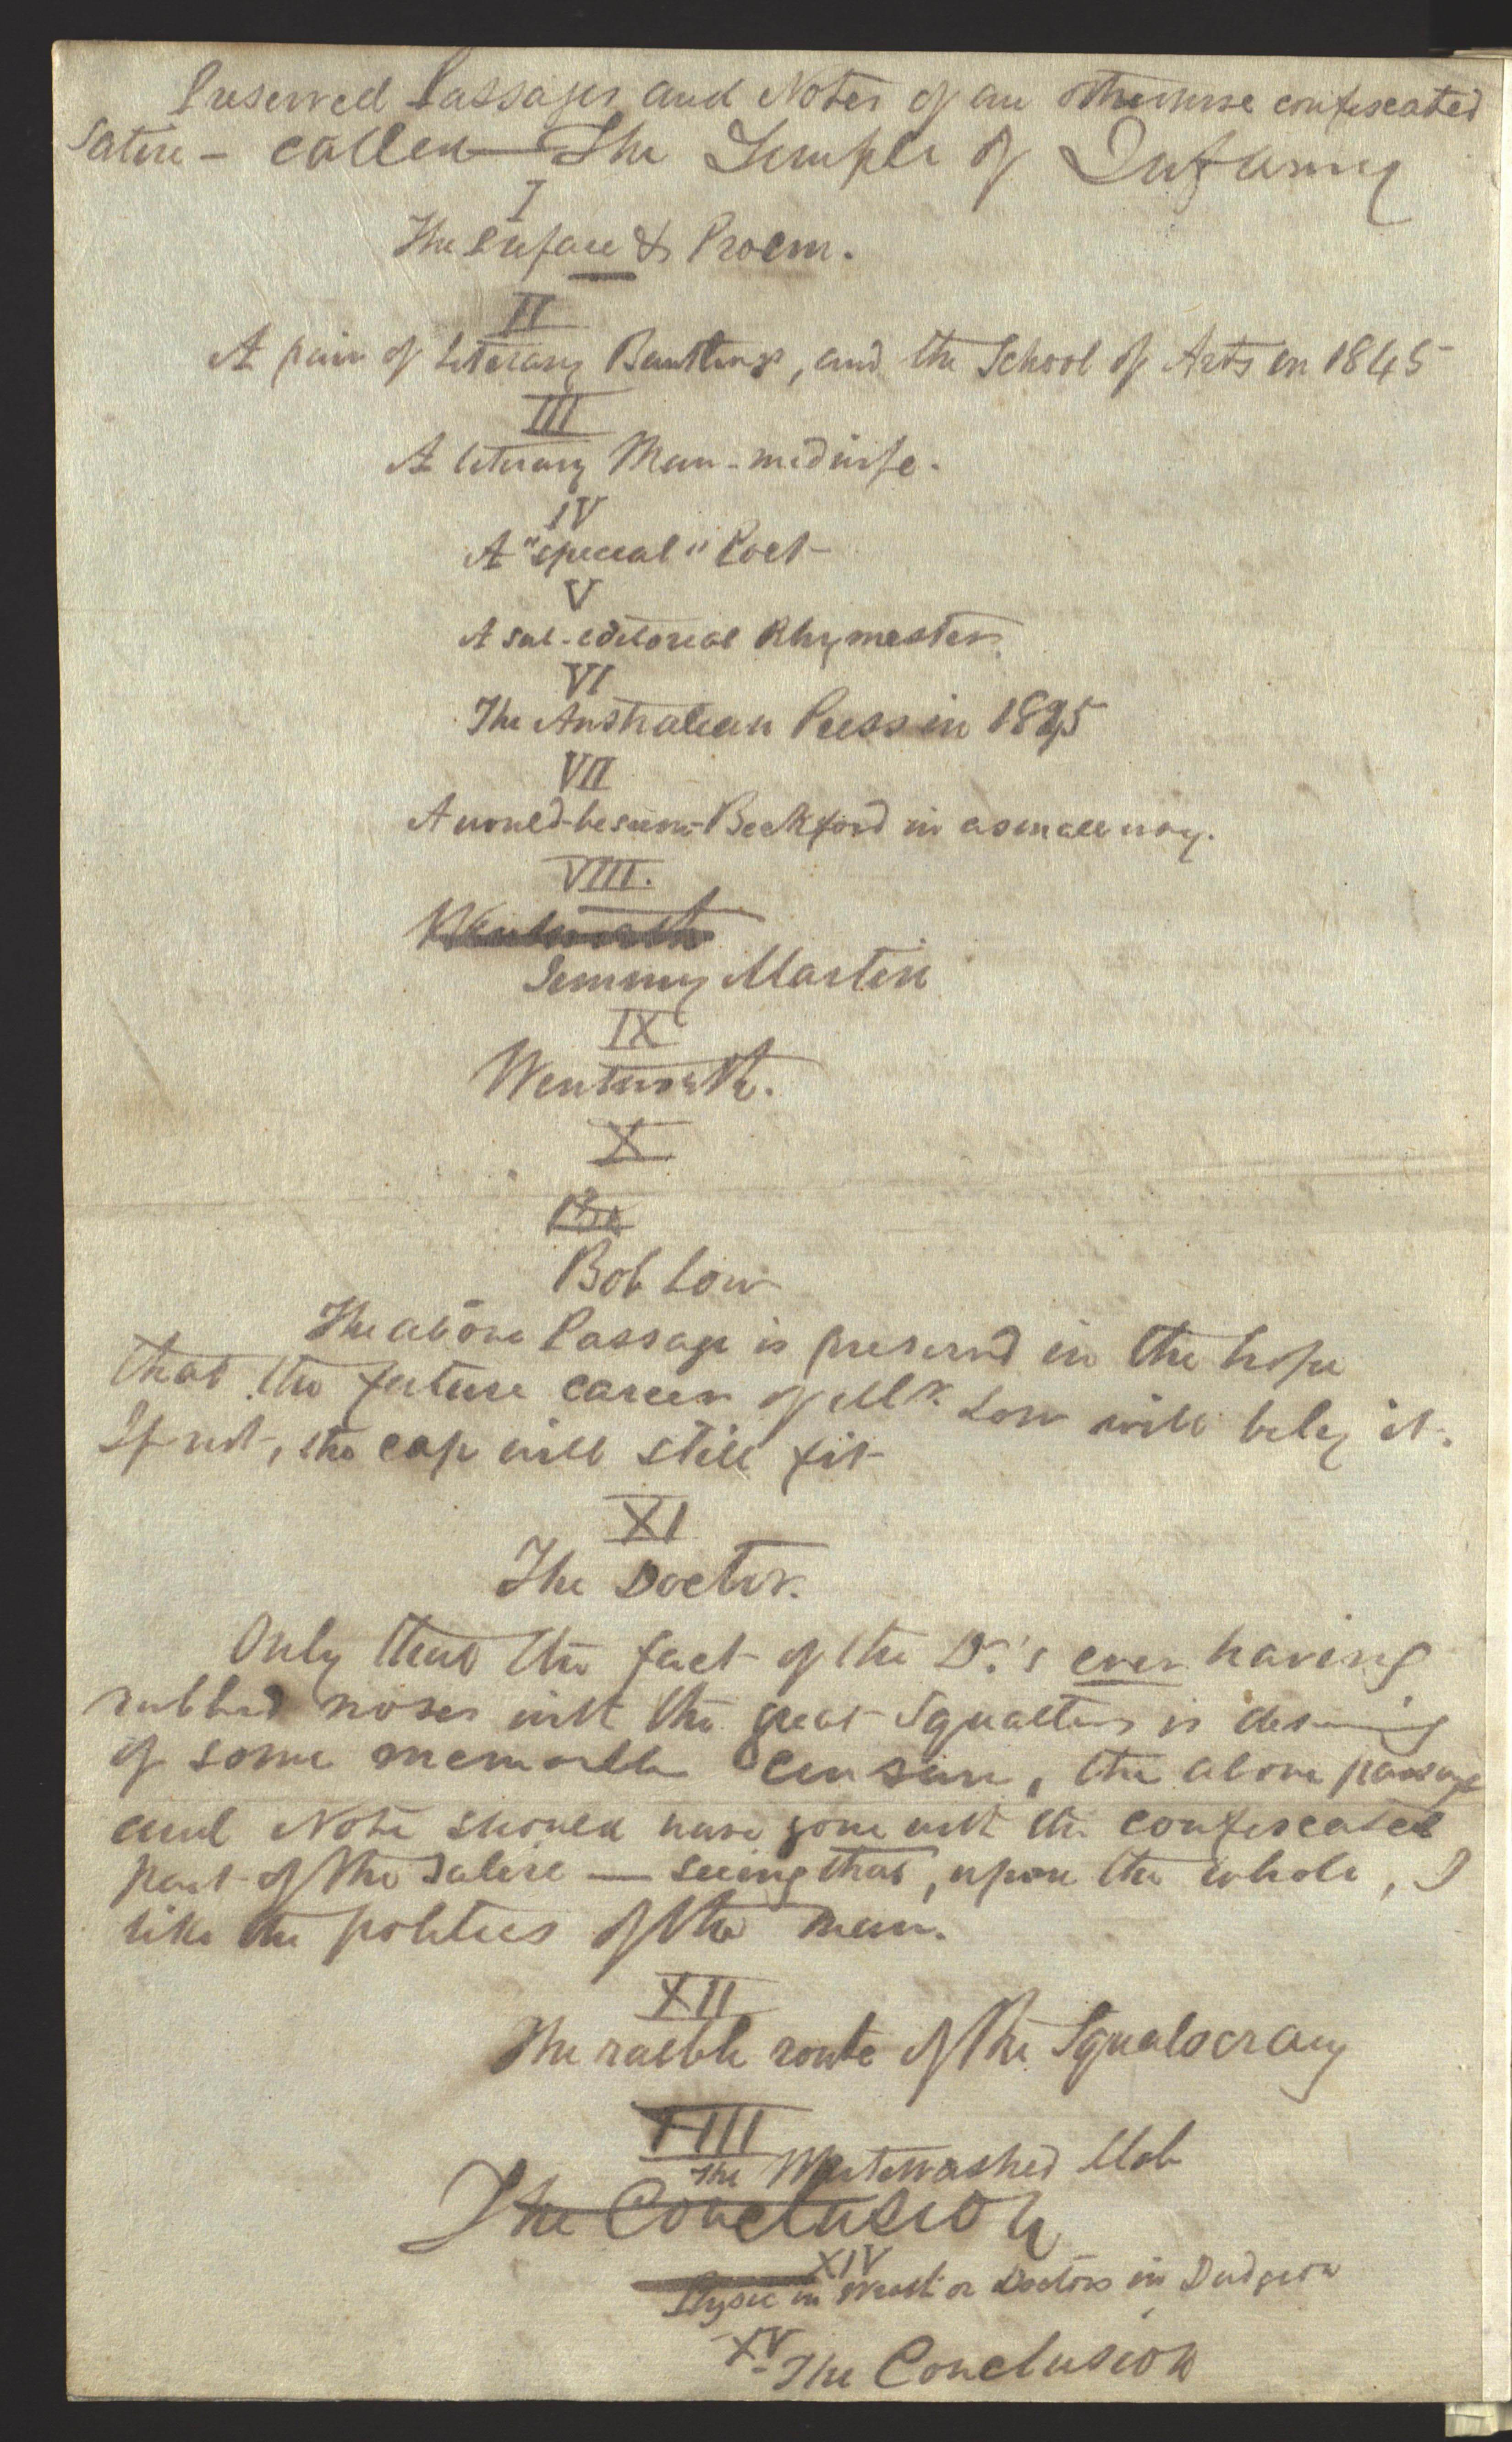 Preserved Passages and Notes of an otherwise confiscated
Satire - called - The Temple of Infamy
I
The Preface & Proem.
II
A pair of Literary Bantlings, and the School of Arts in 1845
III
A literary Man-midwife.
IV
A "special" Poet
V
A sub-editorial Rhymester.
VI
The Australian Press in 1845
VII
A would-be sum- Beckford in a small way.
VIII.
Wentworth
Jemmy Martin
IX
Wentworth.
X
Bo
Bob Low
The above Passage is preserved in the hope
that the future career of Mr. Low will bely it.
If not, the cap will still fit
XI
The Doctor.
Only that the fact of the Dr.'s ever having
rubbed noses with the great Squatters is deserving
of some memorable censure, the above passage
and Note should have gone with the confiscated
part of the Satire — seeing that, upon the whole, I
like the politics of the man.
XII
The rabble route of the Squatocracy
XIII
The Whitewashed Mob
The Conclusion
XIV
Physic in or Doctors in Dudgeon
XV
The Conclusion